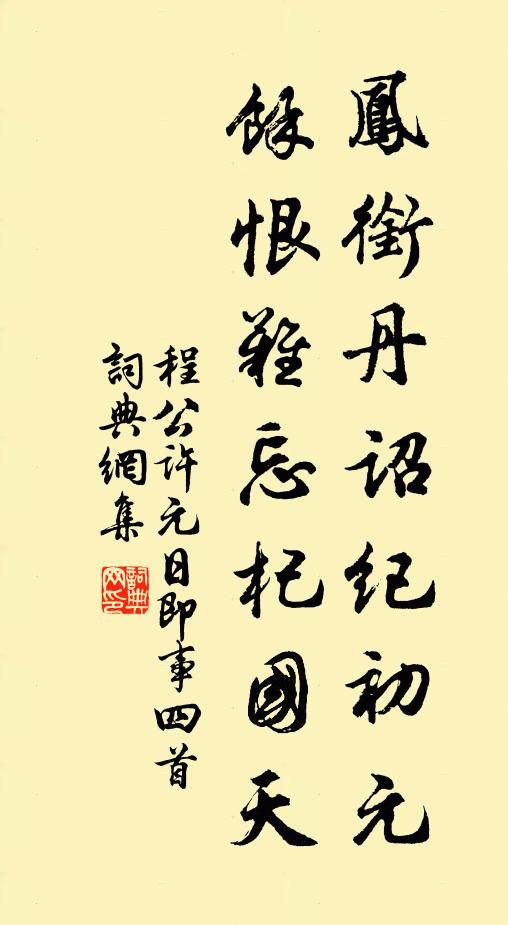 鳳銜丹詔紀初元
餘恨難忘杞國天
程公許元日即事四首
詞典網集
詞典
网印